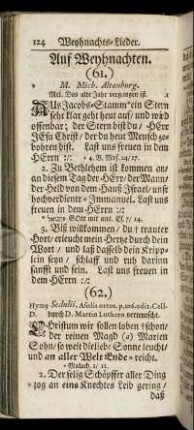 124 Weyhnachts-Lieder.
Auf Weyhnachten.
(61.)
M. Mich. Altenburg.
Mel. Das alte Jahr vergangen ist.
AUs Jacobs-Stamm ein Stern
sehr klar geht heut auf/ und wird
offenbar; der Stern bist du/ HErr
JEsu Christ/ der du heut Mensch ge-
bohren bist. Last uns freuen in dem
HErrn :/: * 4. B. Mos. 24/17.
2. Zu Bethlehem ist kommen an/
an diesem Tag der HErr/ der Mann/
der Held von dem Hauß Israel/ unser
hochverdienter * Immanuel. Last uns
freuen in dem HErrn :/:
* Gott mit uns. Es. 7/14.
3. Biß willkommen/ du † trauter
Hort/ erleucht mein Hertze durch dein
Wort/ und laß dasselb dein Kripp-
lein seyn/ schlaff und ruh darinn
sanfft und sein. Last uns freuen in
dem HErrn :/:
(62.)
Hymn Sedulii. A solis ortus.
D. durch D. Martin Luthern verteutscht.
CHristum wir sollen loben † schon/
der reinen Magd (a) Marien
Sohn/ so weit die liebe * Sonne leucht/
und an aller Welt Ende reicht.
* Malach. 1/11.
2. Der selig Schöpffer aller Ding
zog an eins Knechtes Leib gering/
daß